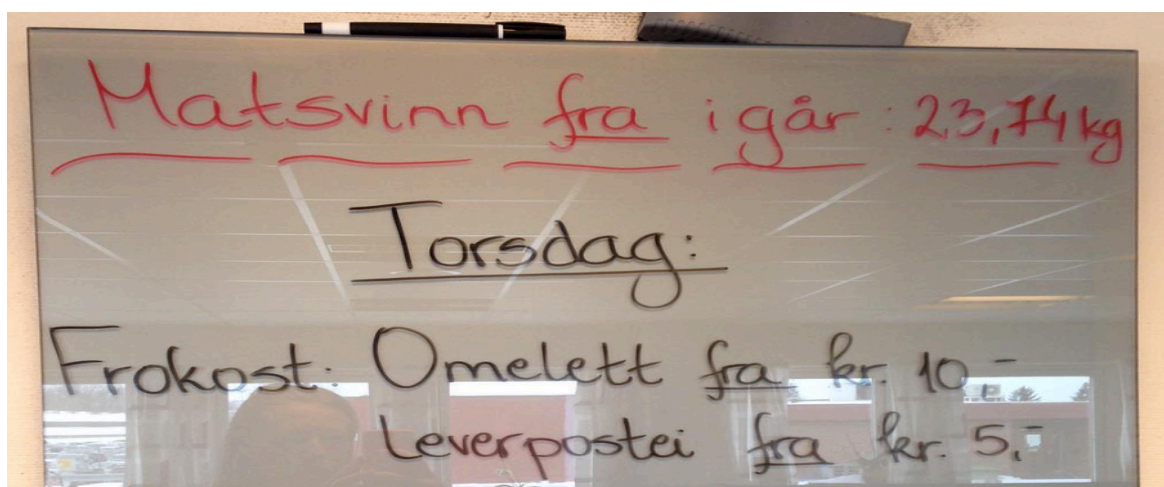 Matsvinn fra i går: 23,74 kg
Torsdag:
Frokost: Omelett fra kr. 10,-
Leverpostei fra kr. 5,-